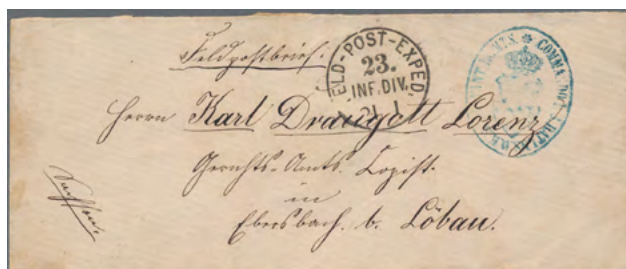 Feldpostbrief.
FELD-POST-EXPED.
23.
INF. DIV.
21 1
COMMANDO
Herrn Karl Traugott Lorenz
Gerichts-Amts-Copist.
in
Ebersbach. b. Löbau.
Sachsen.